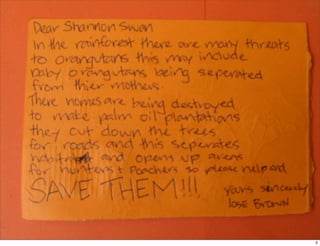 Dear Shannon Swan
In the rainforest there are many threats
to orangutans this may include
baby orangutans being seperated
from thier mothers.
There homes are being destroyed
to make palm oil plantations
they cut down the trees
for roads and this seperates
and opens up areas
for hunters + Poachers so please help and
SAVE THEM!!!
yours sincerely
Jose Brown